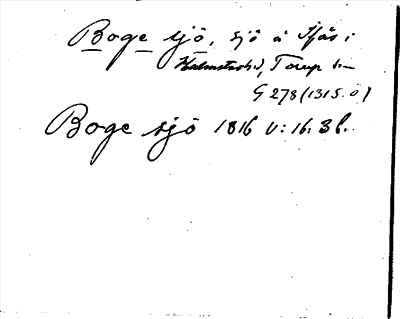 Boge sjö, sjö å Sjös i
Halmstads hd, Torup sn
G 278 (1315.0)
Boge sjö 1816 V: 16. Bl.